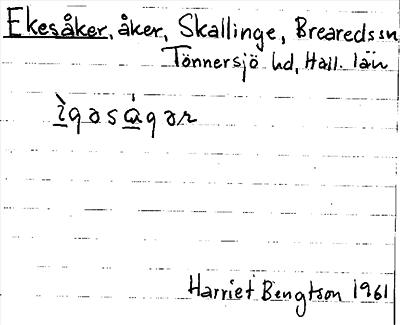 Ekesåker, åker, Skallinge, Breareds sn
Tönnersjö hd, Hall. län
ìgəságər
Harriet Bengtson 1961